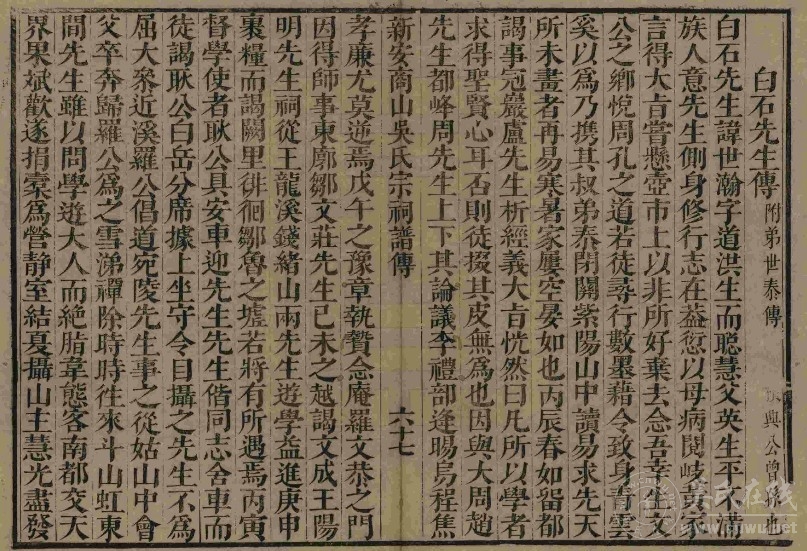 白石先生傳 附弟世泰傳
與公
白石先生諱世瀚字道洪生而聰慧父英生平不滿
族人意先生側身修行志在蓋愆以母病閱岐黃家
言得大旨嘗懸壺市上以非所好棄去念吾幸生文
公之鄉悅周孔之道若徒尋行數墨藉令致身青雲
奚以為乃攜其叔弟泰閉關紫陽山中讀易求先天
所未畫者再易寒暑家屢空晏如也丙辰春如留都
謁事冠巖盧先生析經義大旨恍然曰凡所以學者
求得聖賢心耳否則徒掇其皮無為也因與大周趙
先生都峰周先生上下其論議李禮部逢暘焉程焦
新安商山吳氏宗祠譜傳
六十七
孝廉尤莫逆焉戊午之豫章執贄念庵羅文恭之門
因得師事東廓鄒文莊先生已未之越謁文成王陽
明先生祠從王龍溪錢緒山兩先生遊學益進庚申
裹糧而謁闕里徘徊鄒魯之墟若將有所遇焉丙寅
督學使者耿公具安車迎先生先生偕同志舍車而
徒謁耿公白岳分席據上坐守令目攝之先生不為
屈大參近溪羅公倡道宛陵先生事之從姑山中會
父卒奔歸羅公為之雪涕禫除時時往來斗山虹東
間先生雖以問學遊大人而絶脂韋態客南都交天
界果斌歡遂捐橐為營靜室結夏攝山主慧光盡發